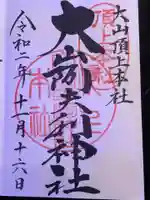 大山頂上本社
大山阿夫利神社
令和二年十一月十六日